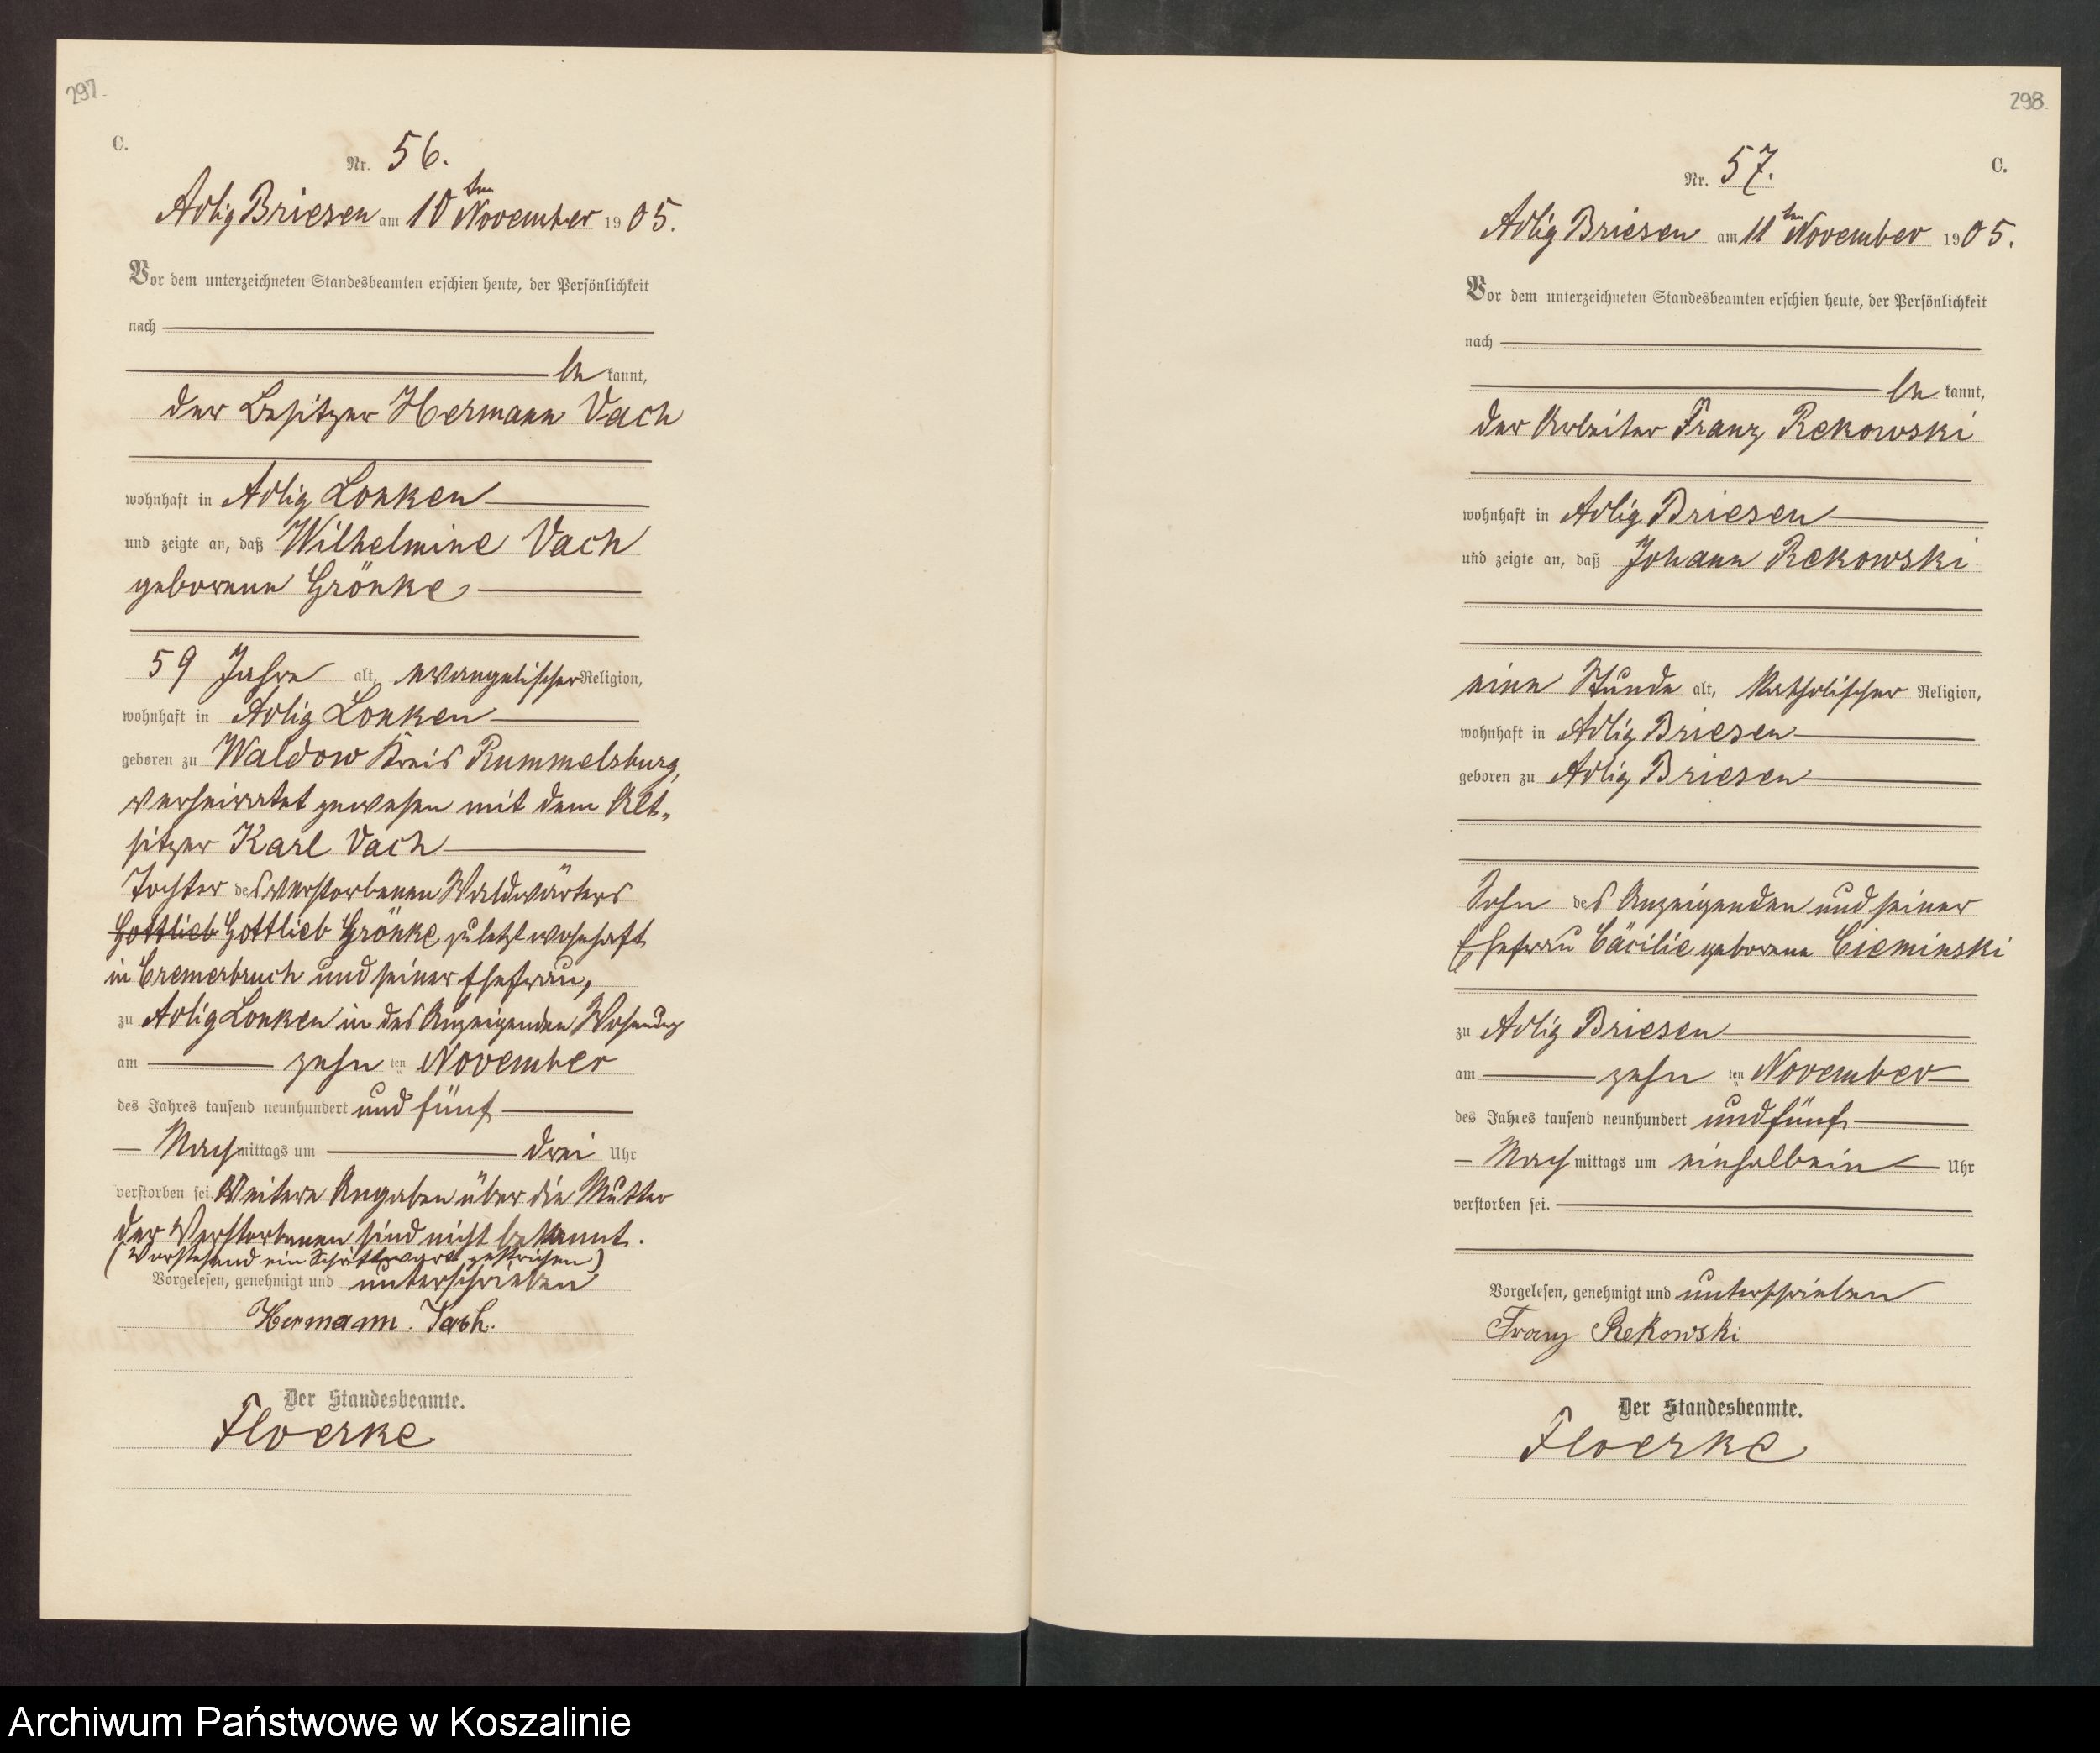 297.
C.
Nr. 56.
Adlig Briesen am 10ten November 1905.
Vor dem unterzeichneten Standesbeamten erschien heute, der Persönlichkeit
nach
be kannt,
der Besitzer Hermann Vach
wohnhaft in Adlig Lonken
und zeigte an, daß Wilhelmine Vach
geborene Grönke
59 Jahre alt, evangelischer Religion,
wohnhaft in Adlig Lonken
geboren zu Waldow Kreis Rummelsburg,
verheiratet gewesen mit dem Alt-
sitzer Karl Vach
Tochter des verstorbenen Waldwärters
Gottlieb Gottlieb Grönke, zuletzt wohnhaft
in Cremerbruch und seiner Ehefrau,
zu Adlig Lonken in des Anzeigenden Wohnung
am zehn ten November
des Jahres tausend neunhundert und fünf
Nachmittags um drei Uhr
verstorben sei. Weitere Angaben über die Mutter
der Verstorbenen sind nicht bekannt.
(Vorstehend ein Schriftwort gestrichen)
Vorgelesen, genehmigt und unterschrieben
Hermann. Vach.
Der Standesbeamte.
Floerke
298.
C.
Nr. 57.
Adlig Briesen am 11ten November 1905.
Vor dem unterzeichneten Standesbeamten erschien heute, der Persönlichkeit
nach
be kannt,
der Arbeiter Franz Rekowski
wohnhaft in Adlig Briesen
und zeigte an, daß Johann Rekowski
eine Stunde alt, katholischer Religion,
wohnhaft in Adlig Briesen
geboren zu Adlig Briesen
Sohn des Anzeigenden und seiner
Ehefrau Cäcilie geborene Cieminski
zu Adlig Briesen
am zehn ten November
des Jahres tausend neunhundert und fünf
Nachmittags um einhalbein Uhr
verstorben sei.
Vorgelesen, genehmigt und unterschrieben
Franz Rekowski
Der Standesbeamte.
Floerke
Archiwum Państwowe w Koszalinie